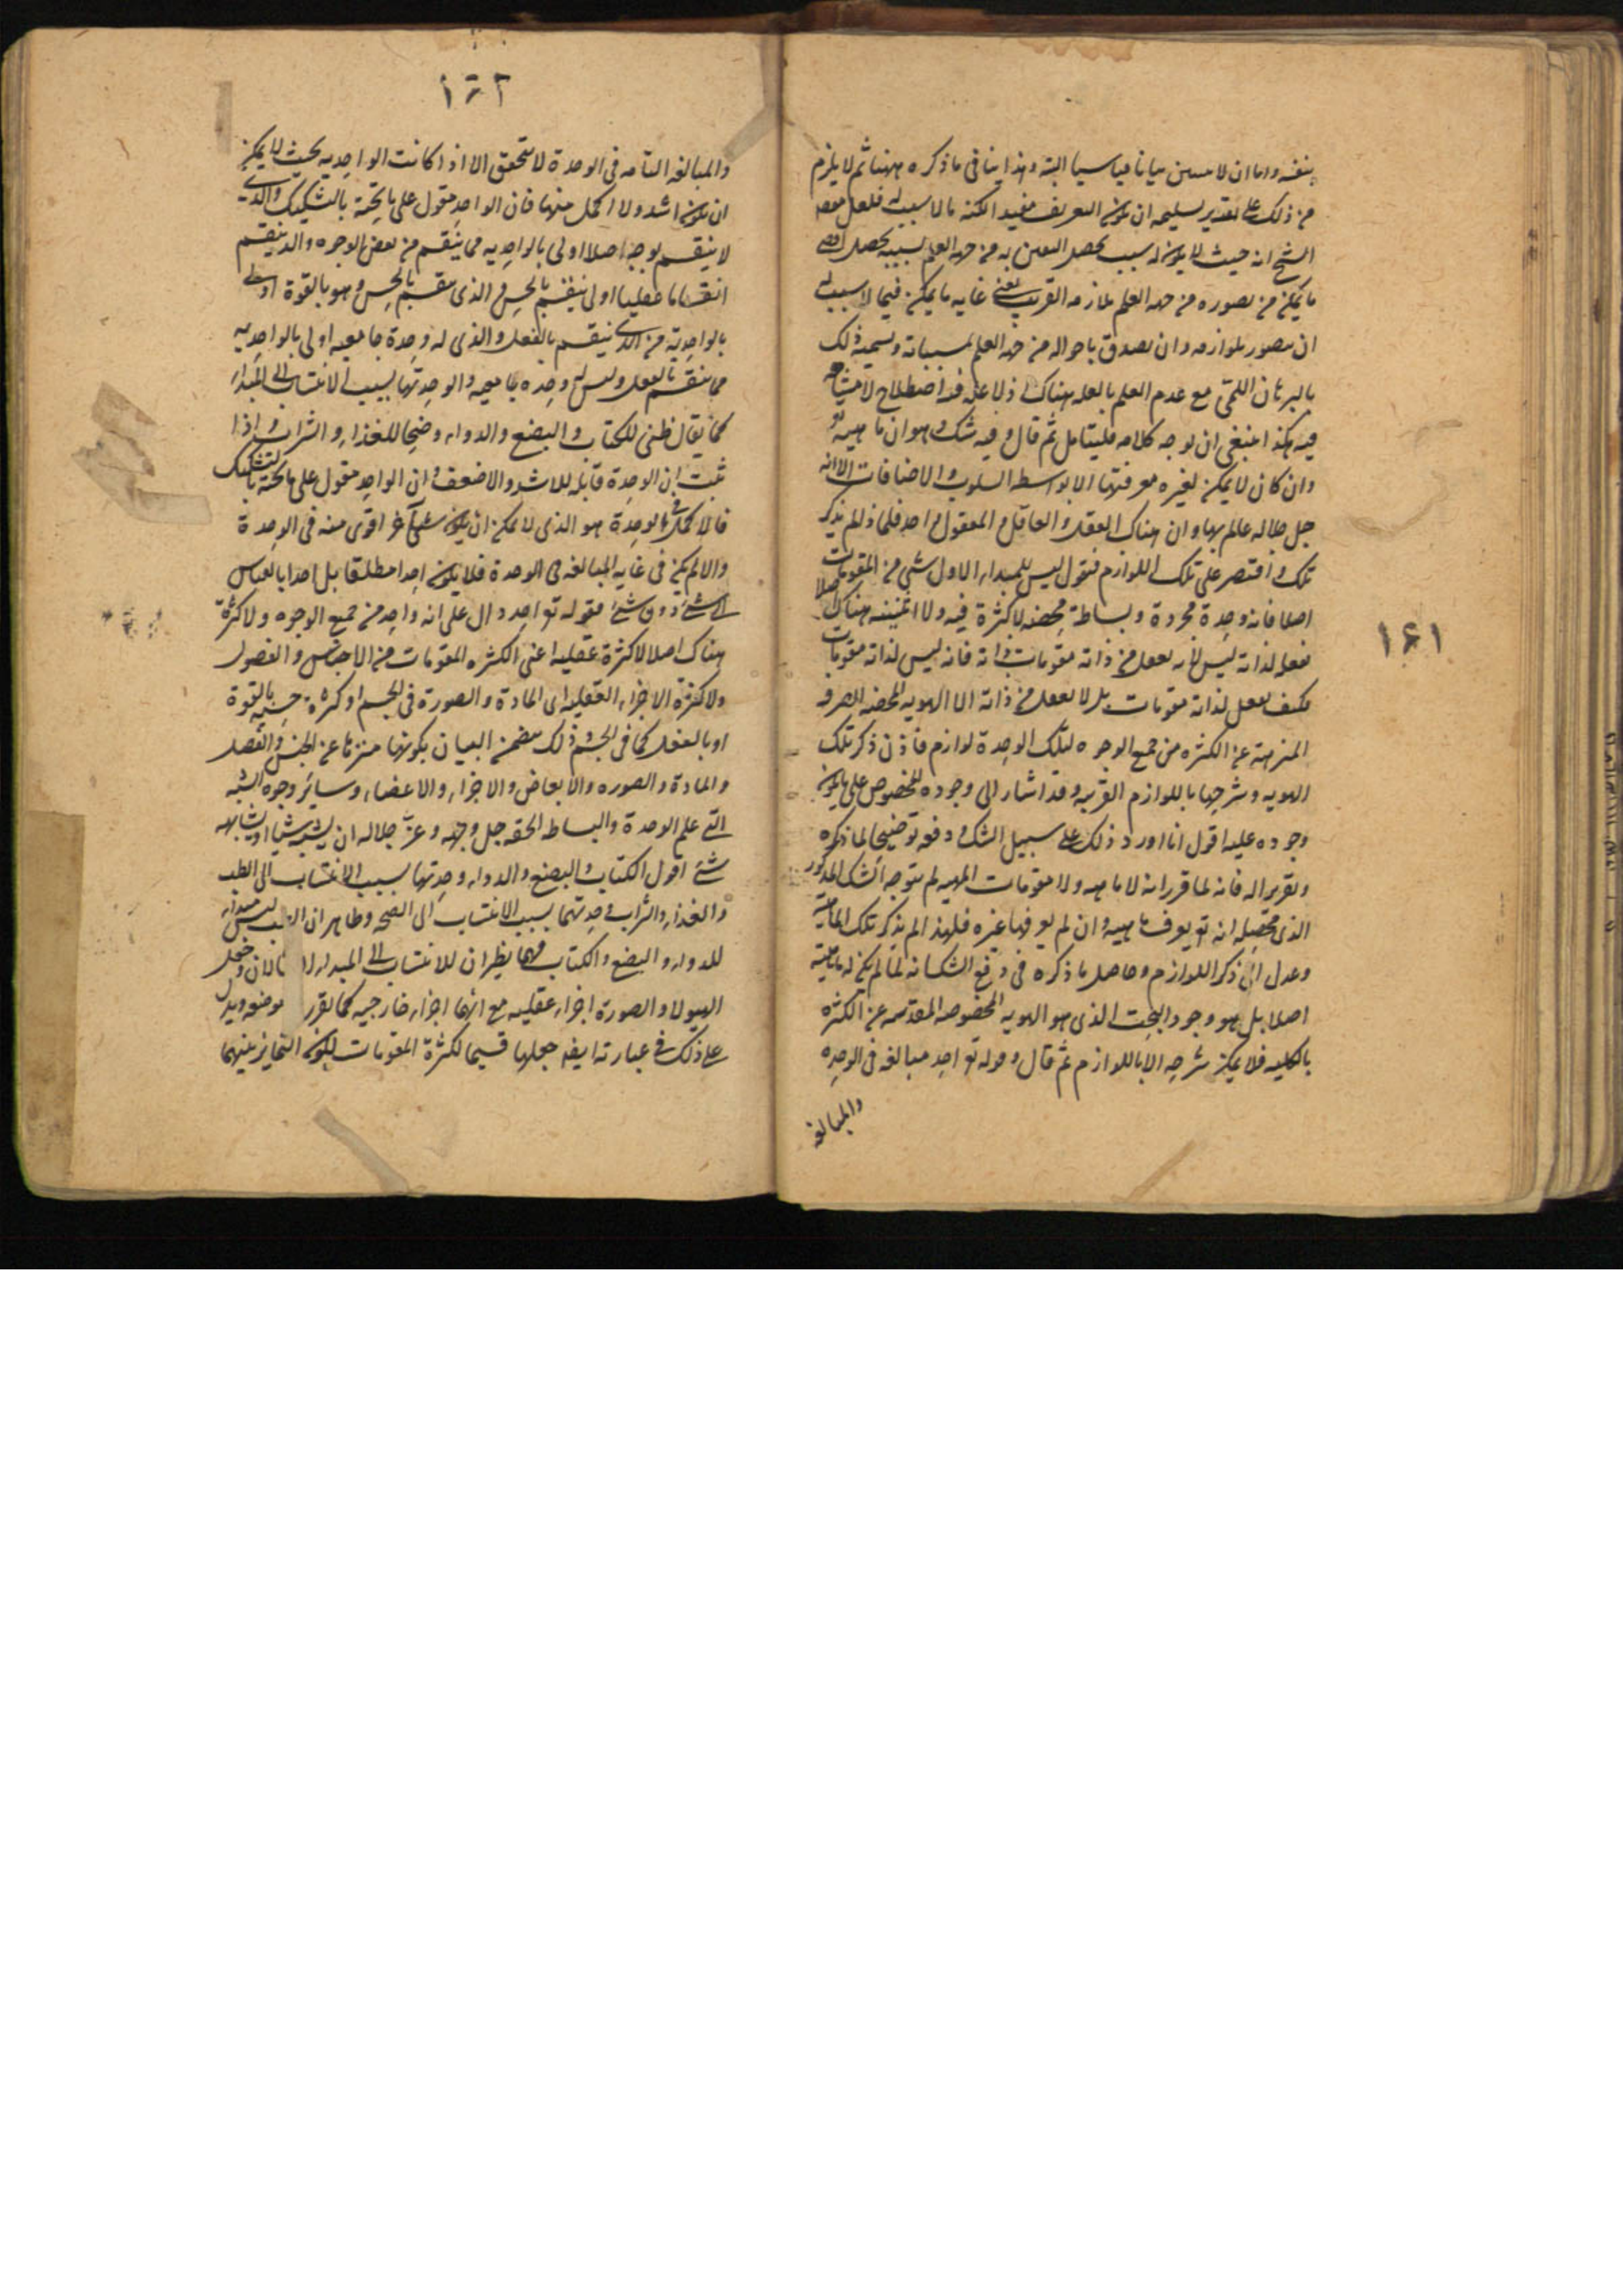 ١٤١
بنفسه واما ان لا يتبين بيانا قياسيا البتة وهذا ينافى ما ذكره ههنا ثم لا يلزم
من ذلك على تقدير تسليمه ان يكون التعريف مفيد الكنه ما لا سبب له فلعل
الشيخ انه حيث لا يكون له سبب يحصل اليقين به من جهة العلم بسببه يحصل
ما يمكن من تصوره من جهة العلم بلازمه القريب يعنى غاية ما يمكن فيما لا سبب له
ان يتصور بلوازمه وان يصدق باحواله من جهة العلم بمسبباته وتسمية ذلك
بالبرهان اللمى مع عدم العلم بالعلة هناك اذ لا علة فيه اصطلاح لا مشاحة
فيه هكذا ينبغى ان يوجه كلامه فليتامل ثم قال وفيه شك وهو ان ماهيته
وان كان لا يمكن لغيره معرفتها الا بواسطة السلوب والاضافات الا انه
جل جلاله عالم بها وان هناك العقل والعاقل والمعقول واحد فلماذا لم يذكر
تلك واقتصر على تلك اللوازم فنقول ليس للمبداء الاول شئ من المقومات
اصلا فانه وحدة مجردة وبساطة محضة لا كثرة فيه ولا اثنينية هناك اصلا
فعقله لذاته ليس لانه يعقل من ذاته مقومات ذاته فانه ليس لذاته مقومات
فكيف يعقل لذاته مقومات بل لا يعقل من ذاته الا الهوية المحضة الصرفة
المنزهة عن الكثرة من جميع الوجوه لتلك الوحدة لوازم فاذن ذكر تلك
الهوية وشرحها باللوازم القريبة وقد اشار الى وجوده المخصوص على ما يكون
وجوده عليه اقول انما اورد ذلك على سبيل الشك ودفعه توضيحا لما ذكره
وتقريرا له فانه لما قرر انه لا ماهية ولا مقومات المهية لم يتوجه الشك المذكور
الذى محصله انه تع يعرف ماهيته وان لم يعرفها غيره فلهذا لم يذكر تلك الماهية
وعدل الى ذكر اللوازم وحاصل ما ذكره فى دفع الشك انه لما لم يكن له ماهية
اصلا بل هو وجود البحت الذى هو الهوية المخصوصة المقدسة عن الكثرة
بالكلية فلا يمكن شرحه الا باللوازم ثم قال وقوله تع احد مبالغة فى الوحدة
والمبالغة
١٤٢
والمبالغة التامة فى الوحدة لا تتحقق الا اذا كانت الواحدية بحيث لا يمكن
ان يكون اشد ولا اكمل منها فان الواحد مقول على ما تحته بالتشكيك والذى
لا ينقسم بوجه اصلا اولى بالواحدية مما ينقسم من بعض الوجوه والذى ينقسم
انقساما عقليا اولى مما ينقسم بالحس والذى ينقسم بالحس وهو بالقوة اولى
بالواحدية من الذى ينقسم بالفعل والذى له وحدة جامعية اولى بالواحدية
مما ينقسم بالفعل وليس له وحدة جامعية والوحدتها بسبب الانتساب الى المبداء
كما يقال طبى للكتاب والبضع والدواء وصحى للغذاء والشراب واذا
ثبت ان الوحدة قابلة للاشد والاضعف وان الواحد مقول على ما تحته بالتشكيك
فالاكمل فى الوحدة هو الذى لا يمكن ان يكون شئ آخر اقوى منه فى الوحدة
والا لم يكن فى غاية المبالغة فى الوحدة فلا يكون احدا مطلقا بل احدا بالقياس
الى شئ دون شئ فقوله تع احد دال على انه واحد من جميع الوجوه ولا كثرة
هناك اصلا لا كثرة عقلية اعنى الكثرة المقومات من الاجناس والفصول
ولا كثرة الاجزاء العقلية اى المادة والصورة فى الجسم او كثرة حسية بالقوة
او بالفعل كما فى الجسم وذلك يتضمن البيان بكونها منزها عن الجنس والفصل
والمادة والصورة والابعاض والاجزاء والاعضاء وسائر وجوه الشبه
التى علم الوحدة والبساطة الحقة جل وجهه وعز جلاله ان يشبه شيئا او يشابهه
شئ اقول الكتاب والبضع والدواء وحدتها بسبب الانتساب الى الطب
والغذاء والشراب وحدتهما بسبب الانتساب الى الصحة وظاهر ان الطب ليس مبداء
للدواء والبضع والكتاب فهما نظيران للانتساب الى المبداء وجعل
الهيولا والصورة اجزاء عقلية مع انهما اجزاء خارجية كما تقرر موضعه ويدل
على ذلك فى عبارته ايضا جعلها قسيما لكثرة المقومات لكون التمايز بينهما